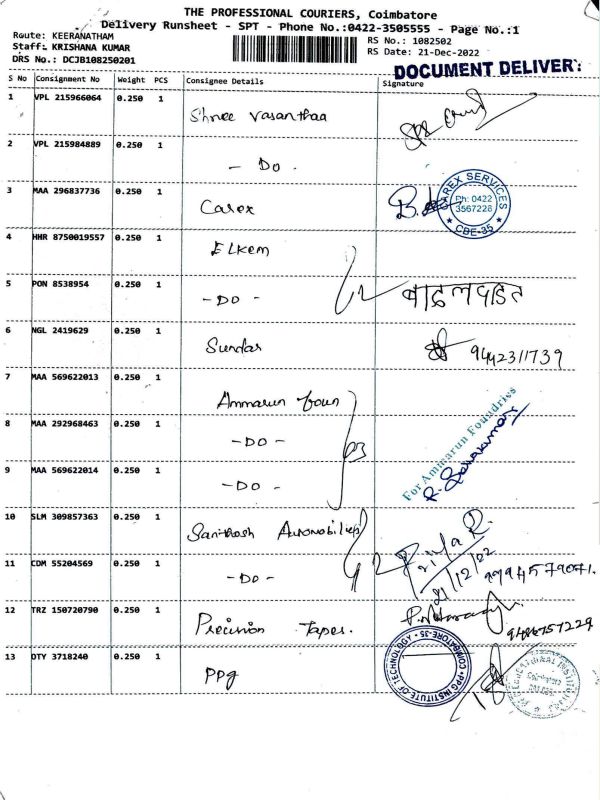 THE PROFESSIONAL COURIERS, Coimbatore
Delivery Runsheet - SPT - Phone No.:0422-3505555 - Page No.:1
Route: KEERANATHAM
Staff: KRISHANA KUMAR
DRS No.: DCJB108250201
RS No.: 1082502
RS Date: 21-Dec-2022
DOCUMENT DELIVER
S No Consignment No Weight PCS Consignee Details Signature
1 VPL 215966064 0.250 1 Shree Vasanthaa
2 VPL 215984889 0.250 1 - DO -
3 MAA 296837736 0.250 1 Carex
CAREX SERVICES
Ph: 0422
3567228
CBE-35
4 HHR 8750019557 0.250 1 Elkem
5 PON 8538954 0.250 1 - DO -
6 NGL 2419629 0.250 1 Sundar 9442311739
7 MAA 569622013 0.250 1 Ammarun foun
8 MAA 292968463 0.250 1 - DO -
9 MAA 569622014 0.250 1 - DO -
03
For Ammarun Foundries
10 SLM 309857363 0.250 1 Santhosh Automobiles
Priya R.
11 CDM 55204569 0.250 1 - DO -
21/12/22
12 TRZ 150720790 0.250 1 Precision Tapes.
9486757229
13 OTY 3718240 0.250 1 PPg
PPG INSTITUTE OF TECHNOLOGY
COIMBATORE-35